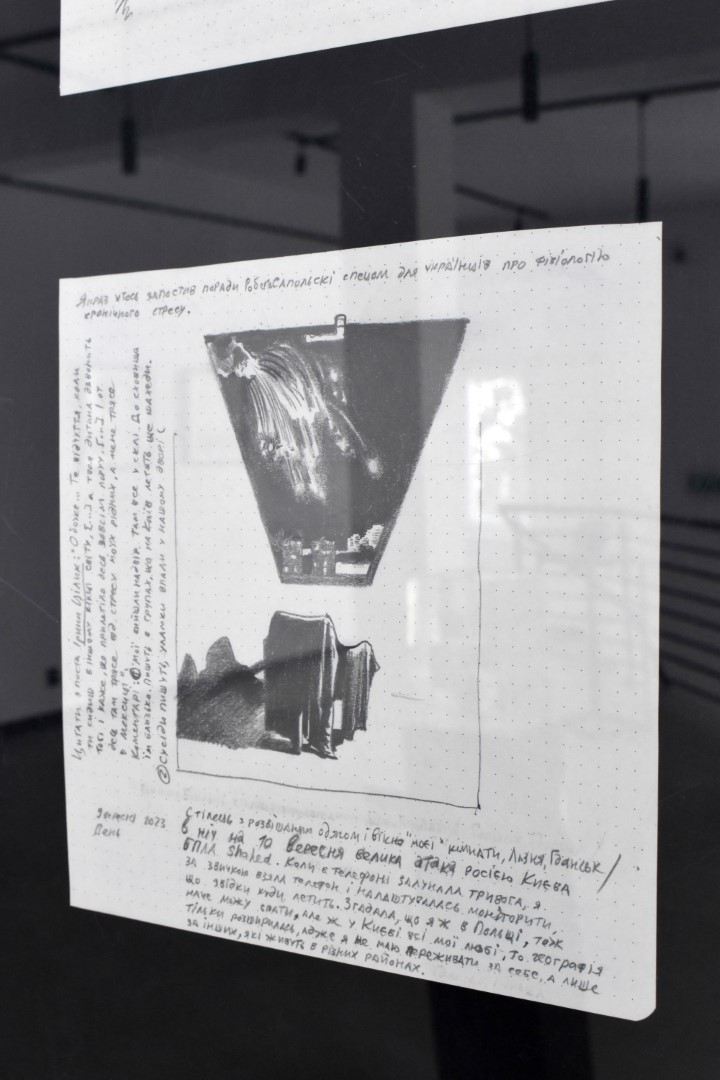 Якраз хтось запостив поради Роберта Сапольскі спецом для українців про фізіологію
хронічного стресу.
Цитати з поста Ірини Цілик: "О боже... Те відчуття, коли
ти сидиш в іншому кінці світу, [...] а твоя дитина дзвонить
тобі і каже, що прилетіло десь зовсім поруч. [...] І от
десь там трясе від стресу моїх рідних, а мене трясе
в Мексиці".
Коментарі: ① Мої вийшли надвір. Там все у склі. До сховища
їм близько. Пишуть в групах, що на Київ летять ще шахеди.
② Сусіди пишуть, уламки впали у нашому дворі (
9 вересня 2023
День
Стілець з розвішаним одягом і вікно "моєї" кімнати, Лазня, Гданськ/
В ніч на 10 вересня велика атака росією Києва
БПЛА Shahed. Коли в телефоні залунала тривога, я
за звичкою взяла телефон і налаштувалась моніторити,
що звідки куди летить. Згадала, що я ж в Польщі, тож
наче можу спати, але ж у Києві всі мої любі, то географія
тільки розширилась, адже я не маю переживати за себе, а лише
за інших, які живуть в різних районах.